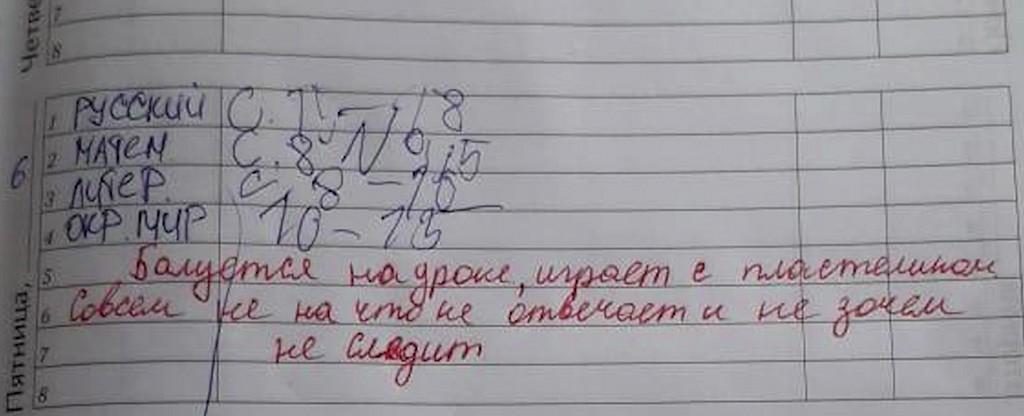 Четве
7
8
Пятница, 6
1 РУССКИЙ
2 МАТЕМ С. 8 №
3 ЛИТЕР. С. 8 –
4 ОКР. МИР 10 – 13
5 Балуется на уроке, играет с пластелином
6 Совсем не на что не отвечает и не зочем
7 не следит
8